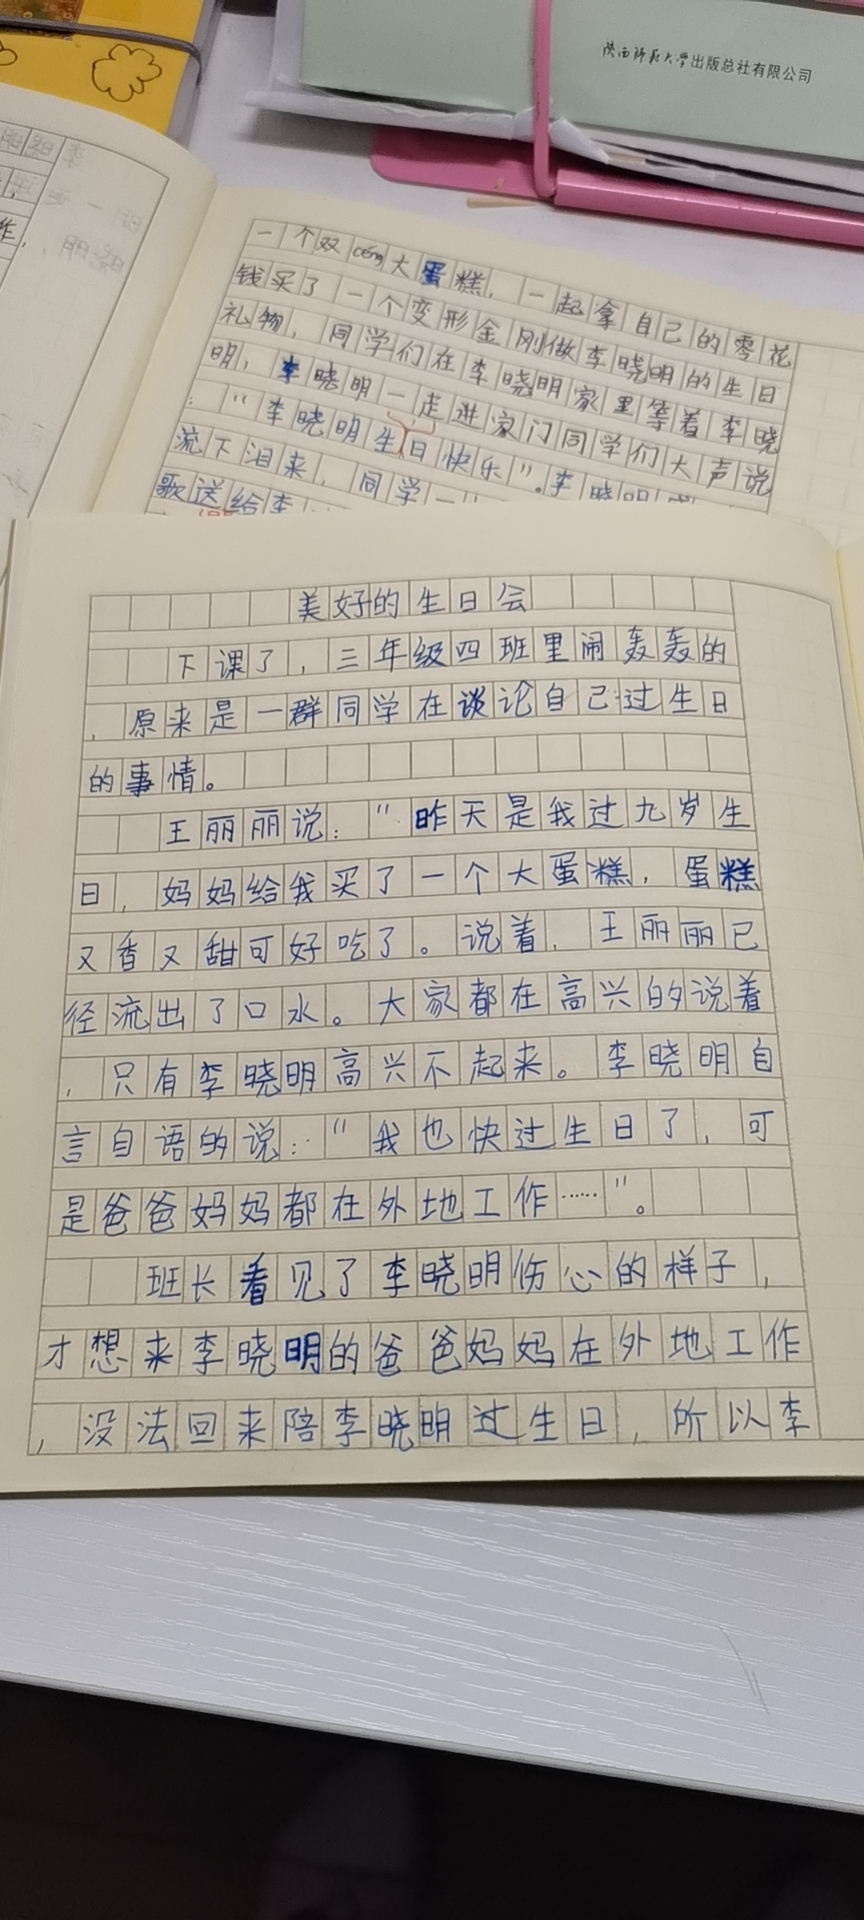 陕西师范大学出版总社有限公司
一个双céng大蛋糕，一起拿自己的零花
钱买了一个变形金刚做李晓明的生日
礼物，同学们在李晓明家里等着李晓
明，李晓明一走进家门同学们大声说
：“李晓明生日快乐”。李晓明
流下泪来，同学一
歌送给李
美好的生日会
下课了，三年级四班里闹轰轰的
，原来是一群同学在谈论自己过生日
的事情。
王丽丽说：“昨天是我过九岁生
日，妈妈给我买了一个大蛋糕，蛋糕
又香又甜可好吃了。说着，王丽丽已
径流出了口水。大家都在高兴的说着
，只有李晓明高兴不起来。李晓明自
言自语的说：“我也快过生日了，可
是爸爸妈妈都在外地工作……”。
班长看见了李晓明伤心的样子，
才想来李晓明的爸爸妈妈在外地工作
，没法回来陪李晓明过生日，所以李